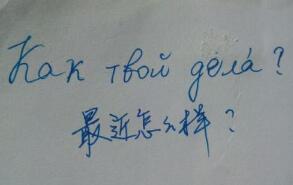 Как твой дела́?
最近怎么样?